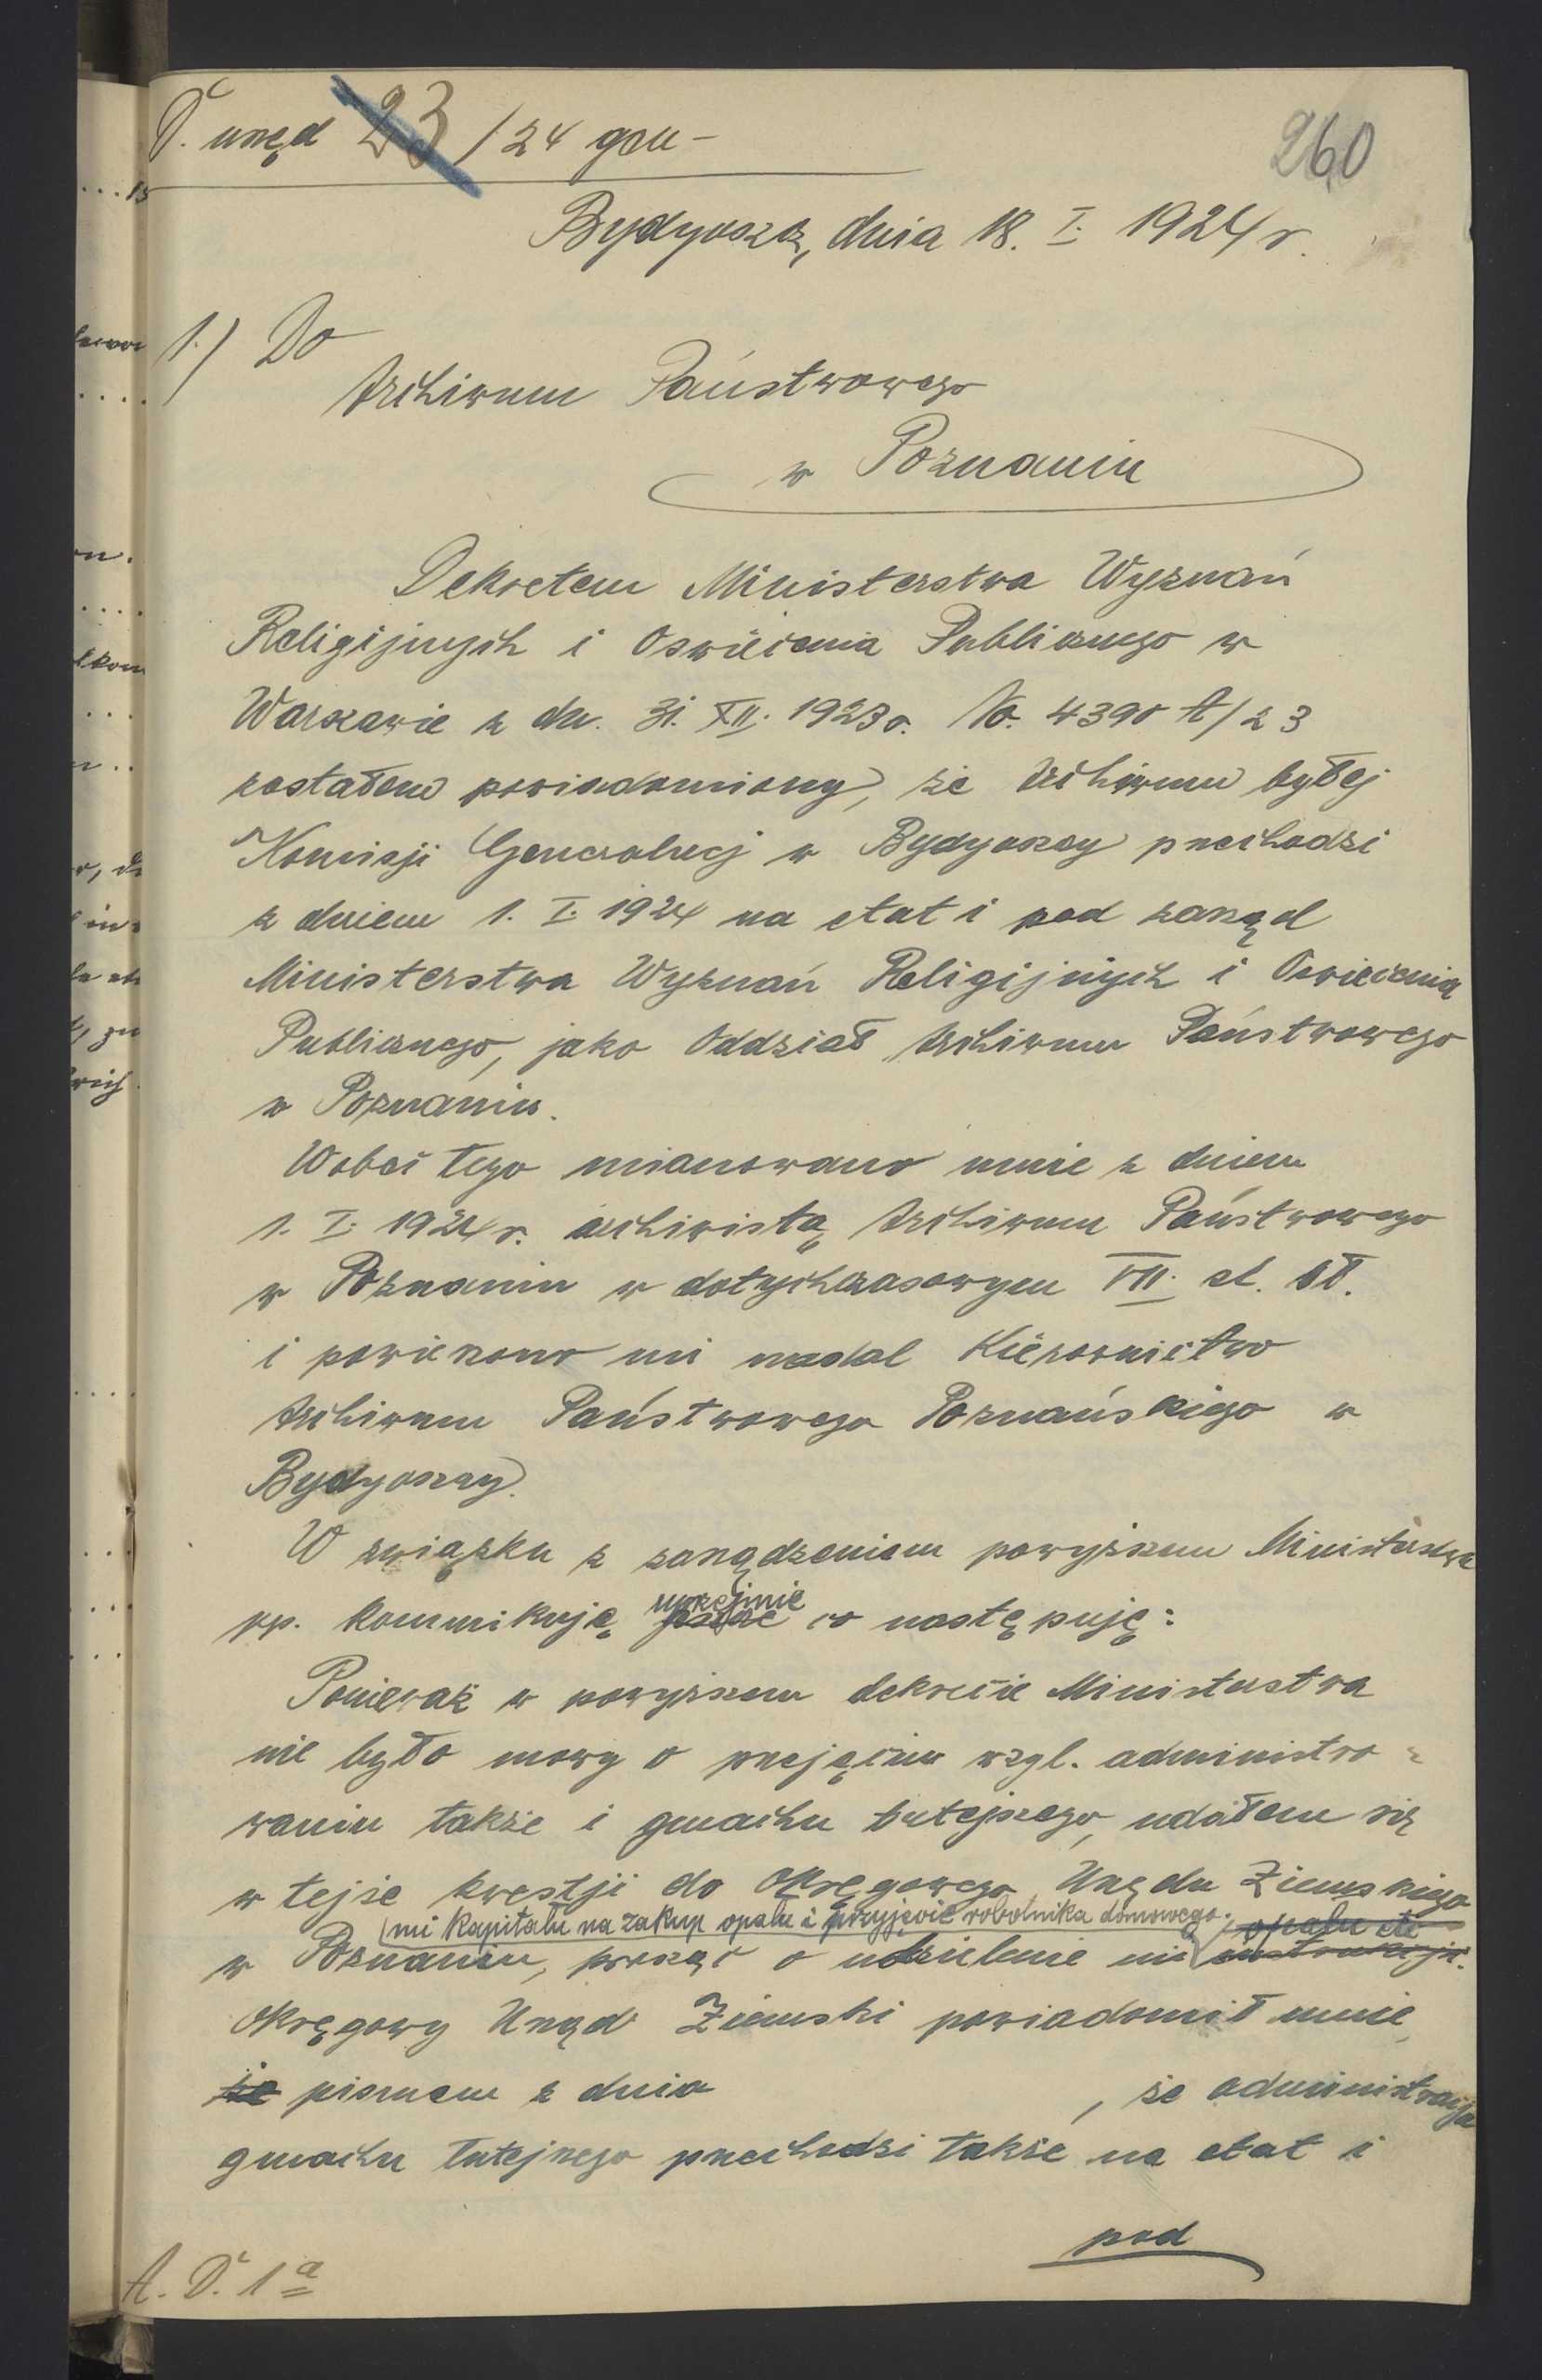 D. urzęd 23/24 gen-
260
Bydgoszcz, dnia 18. I. 1924 r.
1.) Do
Archiwum Państwowego
w Poznaniu
Dekretem Ministerstwa Wyznań
Religijnych i Oświecenia Publicznego w
Warszawie z dn. 31. XII. 1923 r. No. 4390 A/23
zostałem powiadomiony, że Archiwum byłej
Komisji Generalnej w Bydgoszczy przechodzi
z dniem 1. I. 1924 na etat i pod zarząd
Ministerstwa Wyznań Religijnych i Oświecenia
Publicznego, jako Oddział Archiwum Państwowego
w Poznaniu.
Wobec tego mianowano mnie z dniem
1. I. 1924 r. archiwistą Archiwum Państwowego
w Poznaniu w dotychczasowym VII. st. sł.
i powierzono mi nadal Kierownictwo
Archiwum Państwowego Poznańskiego w
Bydgoszczy.
W związku z zarządzeniem powyższem Ministerstwa
pp. komunikuję uprzejmie co następuję:
Ponieważ w powyższem dekrecie Ministerstwa
nie było mowy o przejęciu wzgl. administro-
waniu także i gmachu tutejszego, udałem się
w tejże kwestji do Okręgowego Urzędu Ziemskiego
mi kapitału na zakup opału i przyjęcie robotnika domowego. opału etc
w Poznaniu, prosząc o udzielenie mi instrukcji.
Okręgowy Urząd Ziemski powiadomił mnie,
że pismem z dnia , że administracja
gmachu tutejszego przechodzi także na etat i
pod
A. D. 1a